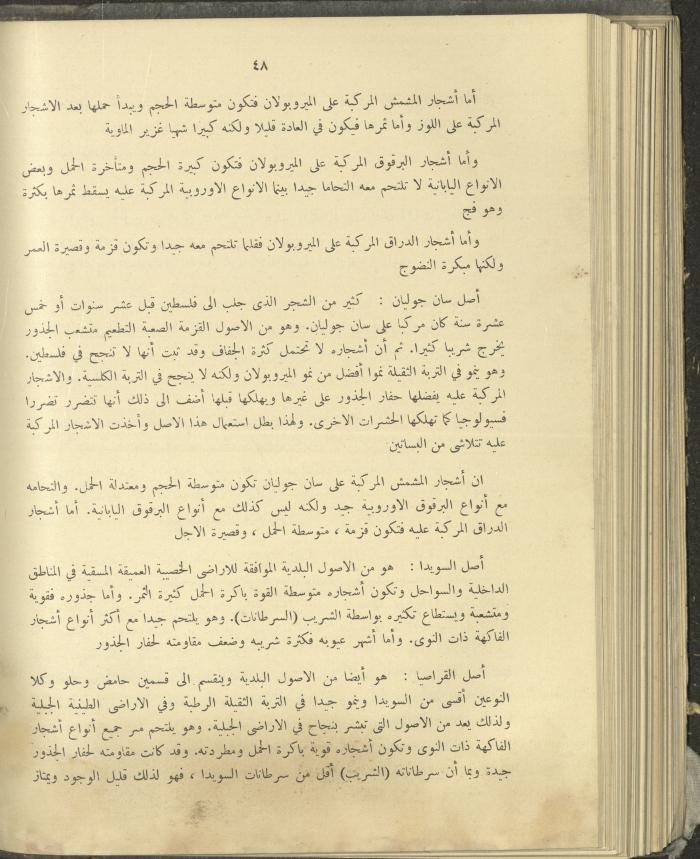 ٤٨
أما أشجار المشمش المركبة على الميروبولان فتكون متوسطة الحجم ويبدأ حملها بعد الاشجار
المركبة على اللوز وأما ثمرها فيكون في العادة قليلا ولكنه كبيرا شهيا غزير الماوية
وأما أشجار البرقوق المركبة على الميروبولان فتكون كبيرة الحجم ومتأخرة الحمل وبعض
الانواع اليابانية لا تلتحم معه التحاما جيدا بينما الانواع الاوروبية المركبة عليه يسقط ثمرها بكثرة
وهو فج
وأما أشجار الدراق المركبة على الميروبولان فقلما تلتحم معه جيدا وتكون قزمة وقصيرة العمر
ولكنها مبكرة النضوج
أصل سان جوليان : كثير من الشجر الذى جلب الى فلسطين قبل عشر سنوات أو خمس
عشرة سنة كان مركبا على سان جوليان. وهو من الاصول القزمة الصعبة التطعيم متشعب الجذور
يخرج شريبا كثيرا. ثم أن أشجاره لا تحتمل كثرة الجفاف وقد ثبت أنها لا تنجح في فلسطين.
وهو ينمو في التربة الثقيلة نموا أفضل من نمو الميروبولان ولكنه لا ينجح في التربة الكلسية. والاشجار
المركبة عليه يفضلها حفار الجذور على غيرها ويهلكها قبلها أضف الى ذلك أنها تتضرر تضررا
فسيولوجيا كما تهلكها الحشرات الاخرى. ولهذا بطل استعمال هذا الاصل وأخذت الاشجار المركبة
عليه تتلاشى من البساتين
ان أشجار المشمش المركبة على سان جوليان تكون متوسطة الحجم ومعتدلة الحمل. والتحامه
مع أنواع البرقوق الاوروبية جيد ولكنه ليس كذلك مع أنواع البرقوق اليابانية. أما أشجار
الدراق المركبة عليه فتكون قزمة ، متوسطة الحمل ، وقصيرة الاجل
أصل السويدا : هو من الاصول البلدية الموافقة للاراضى الخصيبة العميقة المسقية في المناطق
الداخلية والسواحل وتكون أشجاره متوسطة القوة باكرة الحمل كثيرة الثمر. وأما جذوره فقوية
ومتشعبة ويستطاع تكثيره بواسطة الشريب (السرطانات). وهو يلتحم جيدا مع أكثر أنواع أشجار
الفاكهة ذات النوى. وأما أشهر عيوبه فكثرة شريبه وضعف مقاومته لحفار الجذور
أصل القراصيا : هو أيضا من الاصول البلدية وينقسم الى قسمين حامض وحلو وكلا
النوعين أقسى من السويدا وينمو جيدا في التربة الثقيلة الرطبة وفي الاراضى الطينية الجبلية
ولذلك يعد من الاصول التى تبشر بنجاح في الاراضى الجبلية. وهو يلتحم مع جميع أنواع أشجار
الفاكهة ذات النوى وتكون أشجاره قوية باكرة الحمل ومطردته. وقد كانت مقاومته لحفار الجذور
جيدة وبما أن سرطاناته (الشريب) أقل من سرطانات السويدا ، فهو لذلك قليل الوجود ويمتاز